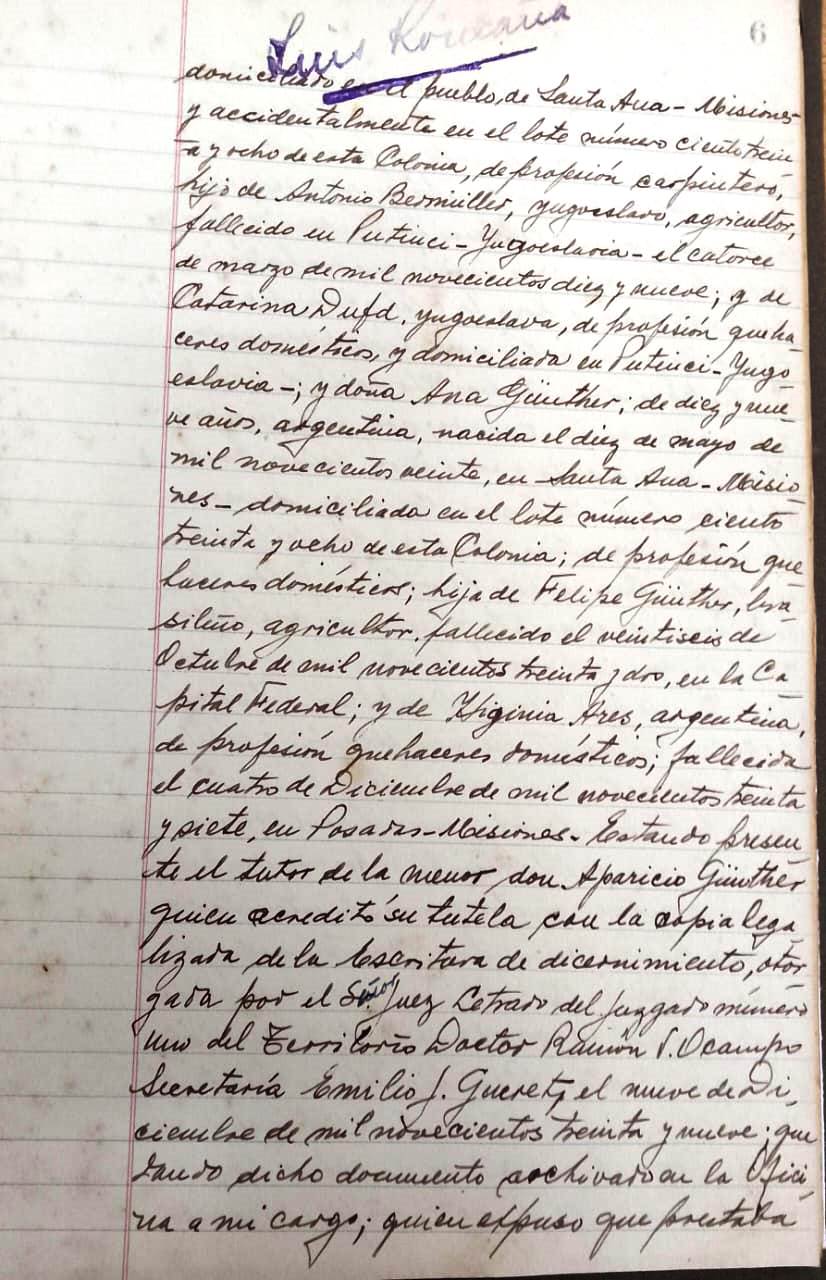 6
Luis
domiciliado en el pueblo, de Santa Ana - Misiones -
y accidentalmente en el lote número ciento trein
ta y ocho de esta Colonia, de profesión carpintero,
hijo de Antonio Bermüller, yugoeslavo, agricultor,
fallecido en Putinci - Yugoeslavia - el catorce
de marzo de mil novecientos diez y nueve; y de
Catarina Dufd, yugoeslava, de profesión queha-
ceres domésticos, y domiciliada en Putinci - Yugo
eslavia -; y doña Ana Günther; de diez y nue-
ve años, argentina, nacida el diez de mayo de
mil novecientos veinte, en Santa Ana - Misio
nes - domiciliada en el lote número ciento
treinta y ocho de esta Colonia; de profesión que
haceres domésticos; hija de Felipe Günther, bra-
sileño, agricultor, fallecido el veintiseis de
Octubre de mil novecientos treinta y dos, en la Ca-
pital Federal; y de Higinia Ares, argentina,
de profesión quehaceres domésticos; fallecida
el cuatro de Diciembre de mil novecientos treinta
y siete, en Posadas - Misiones - Estando presen-
te el tutor de la menor don Aparicio Günther
quien acreditó su tutela con la copia lega-
lizada de la Escritura de dicernimiento, otor-
gada por el Señor Juez Letrado del Juzgado número
uno del Territorio Doctor Ramón V. Ocampo
Secretaría Emilio J. Gueret, el nueve de Di-
ciembre de mil novecientos treinta y nueve; que
dando dicho documento archivado en la Ofici-
na a mi cargo; quien expuso que prestaba